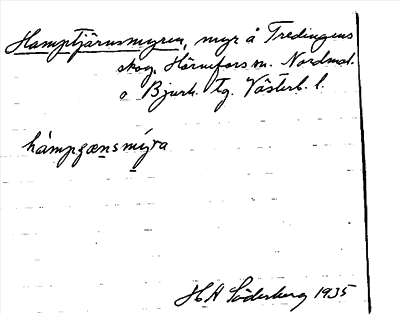 Hamptjärnsmyren, myr å Tredingens
skog, Hörnefors sn. Nordmal.
o Bjurh. tg. Västerb. l.
håmpçænsmýra
H A Söderberg 1935